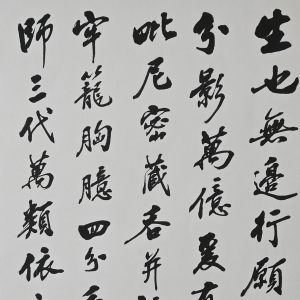 生也無邊行願
分影萬億爰
毗尼密藏吞并
牢籠胸臆四分
師三代萬類依